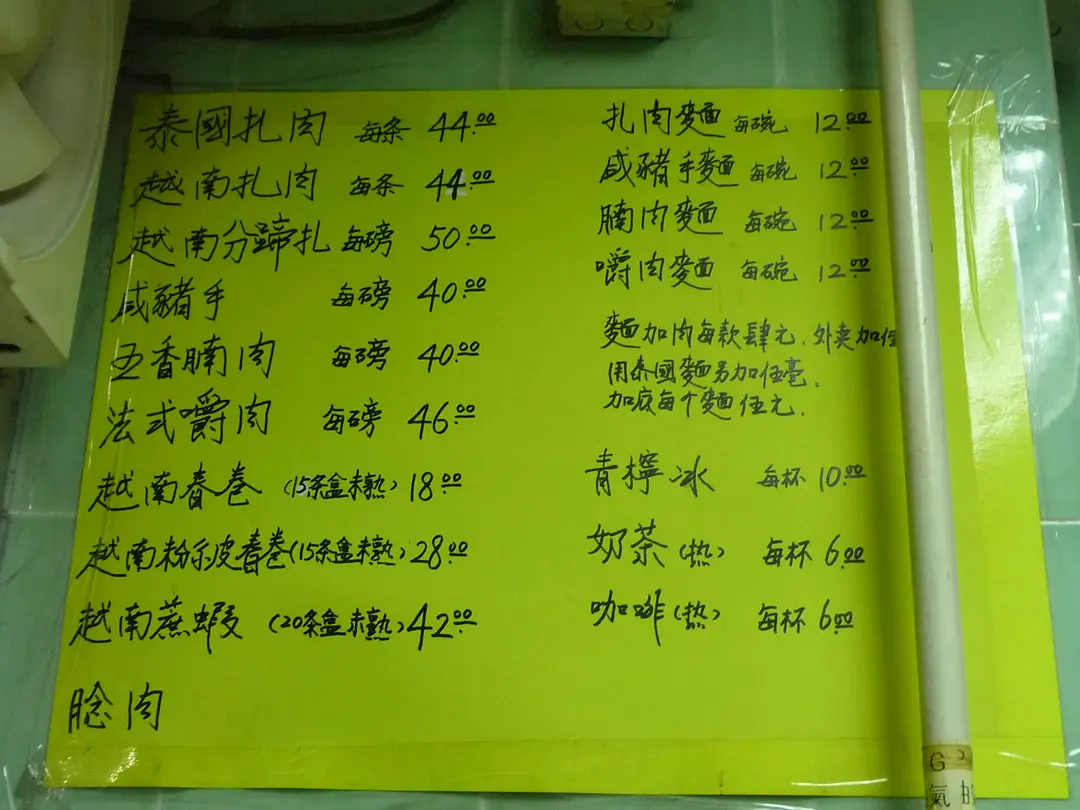 泰國扎肉 每条 44.00
越南扎肉 每条 44.00
越南分蹄扎 每磅 50.00
咸豬手 每磅 40.00
五香腩肉 每磅 40.00
法式嚼肉 每磅 46.00
越南春卷 (15条盒未熟) 18.00
越南粉乐皮春卷(15条盒未熟) 28.00
越南蔗蝦 (20条盒未熟) 42.00
腍肉
扎肉麵 每碗 12.00
咸豬手麵 每碗 12.00
腩肉麵 每碗 12.00
嚼肉麵 每碗 12.00
麵加肉每款肆元.外卖加伍
用泰國麵另加伍毫.
加底每个麵伍元.
青檸冰 每杯 10.00
奶茶(热) 每杯 6.00
咖啡(热) 每杯 6.00
G
氣